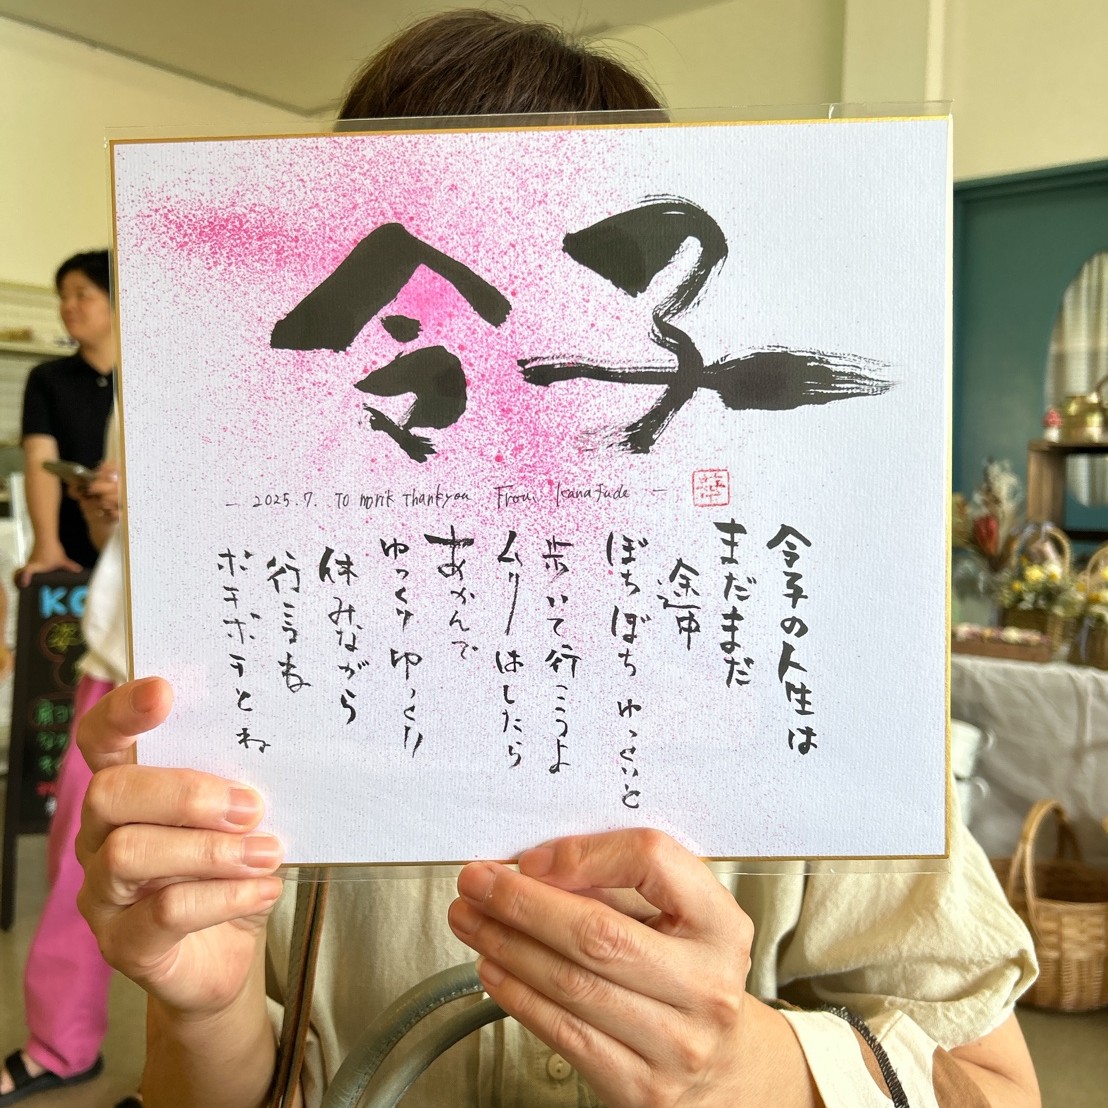 令子
— 2025.7. To norik Thankyou From Kanafude —
令子の人生は
まだまだ
途中
ぼちぼち ゆっくりと
歩いて行こうよ
ムリはしたら
あかんで
ゆっくり ゆっくり
休みながら
行こうね
ボチボチとね
KO